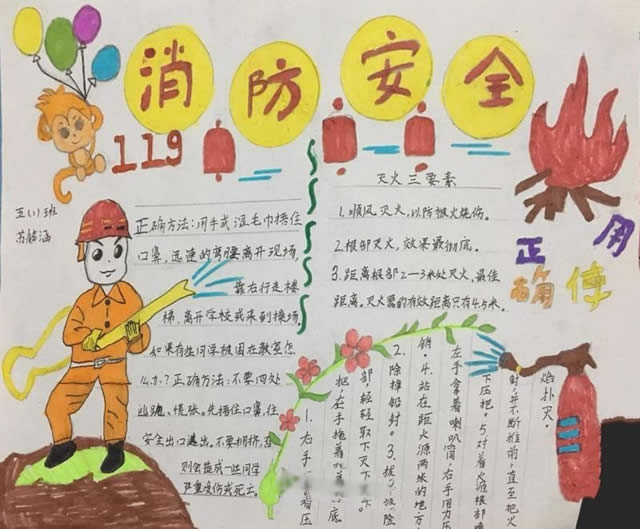 消防安全
119
五(1)班
苏韵涵
正确方法:用手或湿毛巾捂住
口鼻,迅速的弯腰离开现场,
靠右行走楼
梯,离开学校或来到操场
如果有些同学被困在教室怎
么办?正确方法:不要四处
乱跑、慌张。先捂住口鼻,往
安全出口逃出。不要拥挤,否
则会造成一些同学
严重烫伤或死亡。
灭火三要素
1.顺风灭火,以防被火烧伤。
2.根部灭火,效果最彻底。
3.距离根部2—3米处灭火,最佳
距离。灭火器的有效距离只有4.5米。
正确使用
1.右手
压
把,左手
底
部,轻轻取下灭
2.除掉铅封。3.拔
险
销。4.站在距火源两米的地方
左手拿着喇叭筒,右手用力
下压把。5.对着火源根部
时,并不断推前,直至把火
焰扑灭。